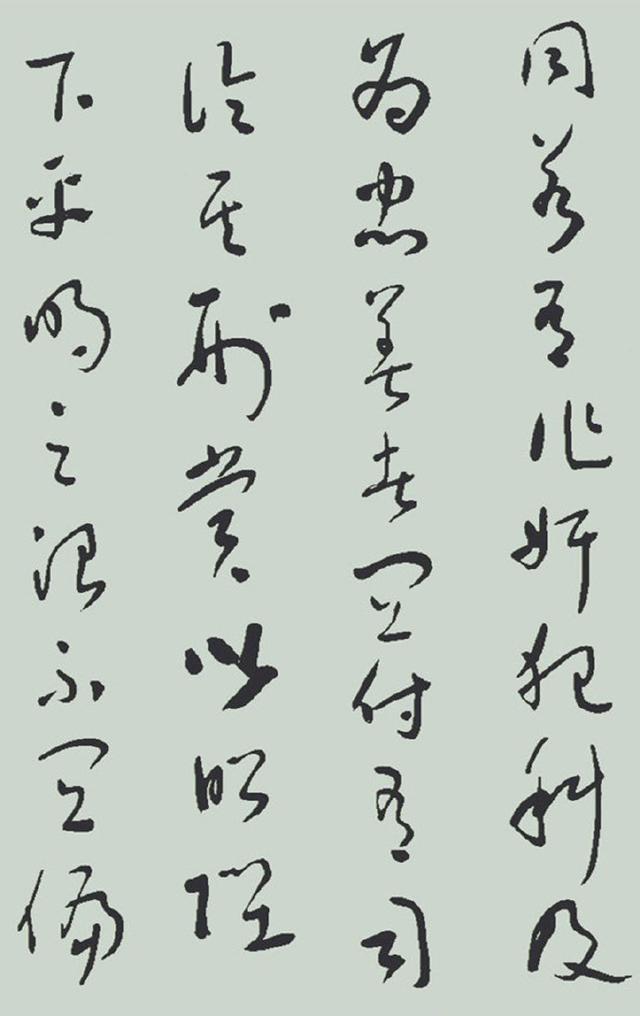 同若有作奸犯科及
為忠善者宜付有司
論其刑賞以昭陛
下平明之治不宜偏